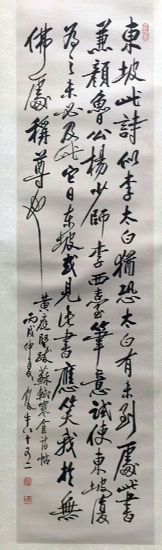 東坡此詩似李太白猶恐太白有未到處此書
兼顏魯公楊少師李西臺筆意試使東坡復
為之未必及此它日東坡或見此書應笑我於無
佛處稱尊也
黃庭堅跋蘇軾寒食詩帖
丙戌仲夏年八十又二